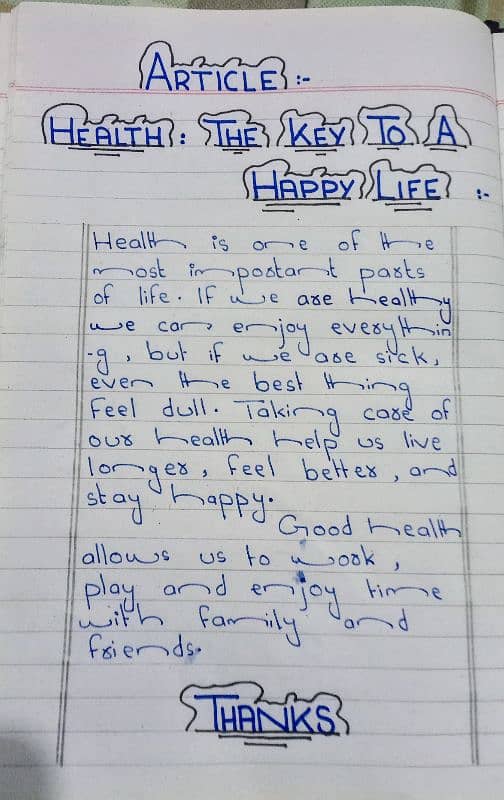 ARTICLE :-
HEALTH : THE KEY TO A
HAPPY LIFE :-
Health is one of the
most important parts
of life. If we are healthy
we can enjoy everythin
-g, but if we are sick,
even the best thing
Feel dull. Taking care of
our health help us live
longer, feel better, and
stay happy.
Good health
allows us to work,
play and enjoy time
with family and
friends.
THANKS